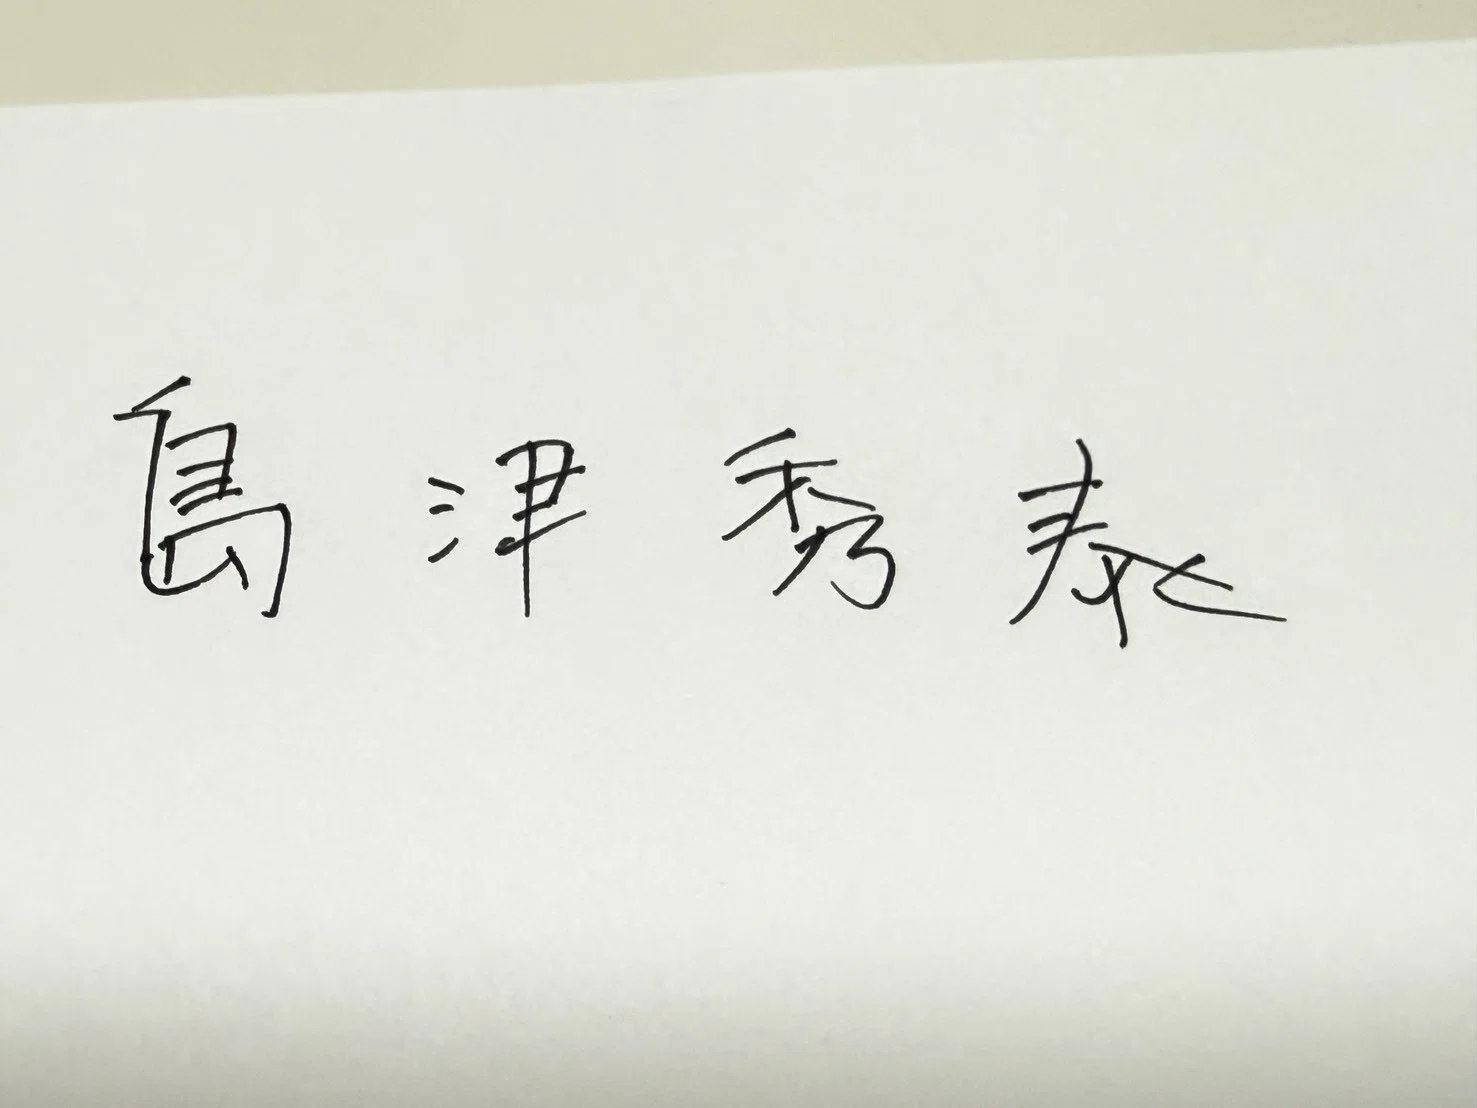 島津秀泰